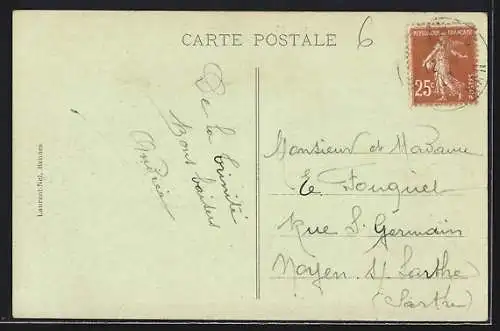 CARTE POSTALE
6
REPUBLIQUE FRANÇAISE
25c
POSTES
De la trinité
Bons baisers
Andrée
Monsieur et Madame
E. Fouquet
Rue St Germain
Noyen s/ Sarthe
(Sarthe)
Laurent-Nel, Rennes